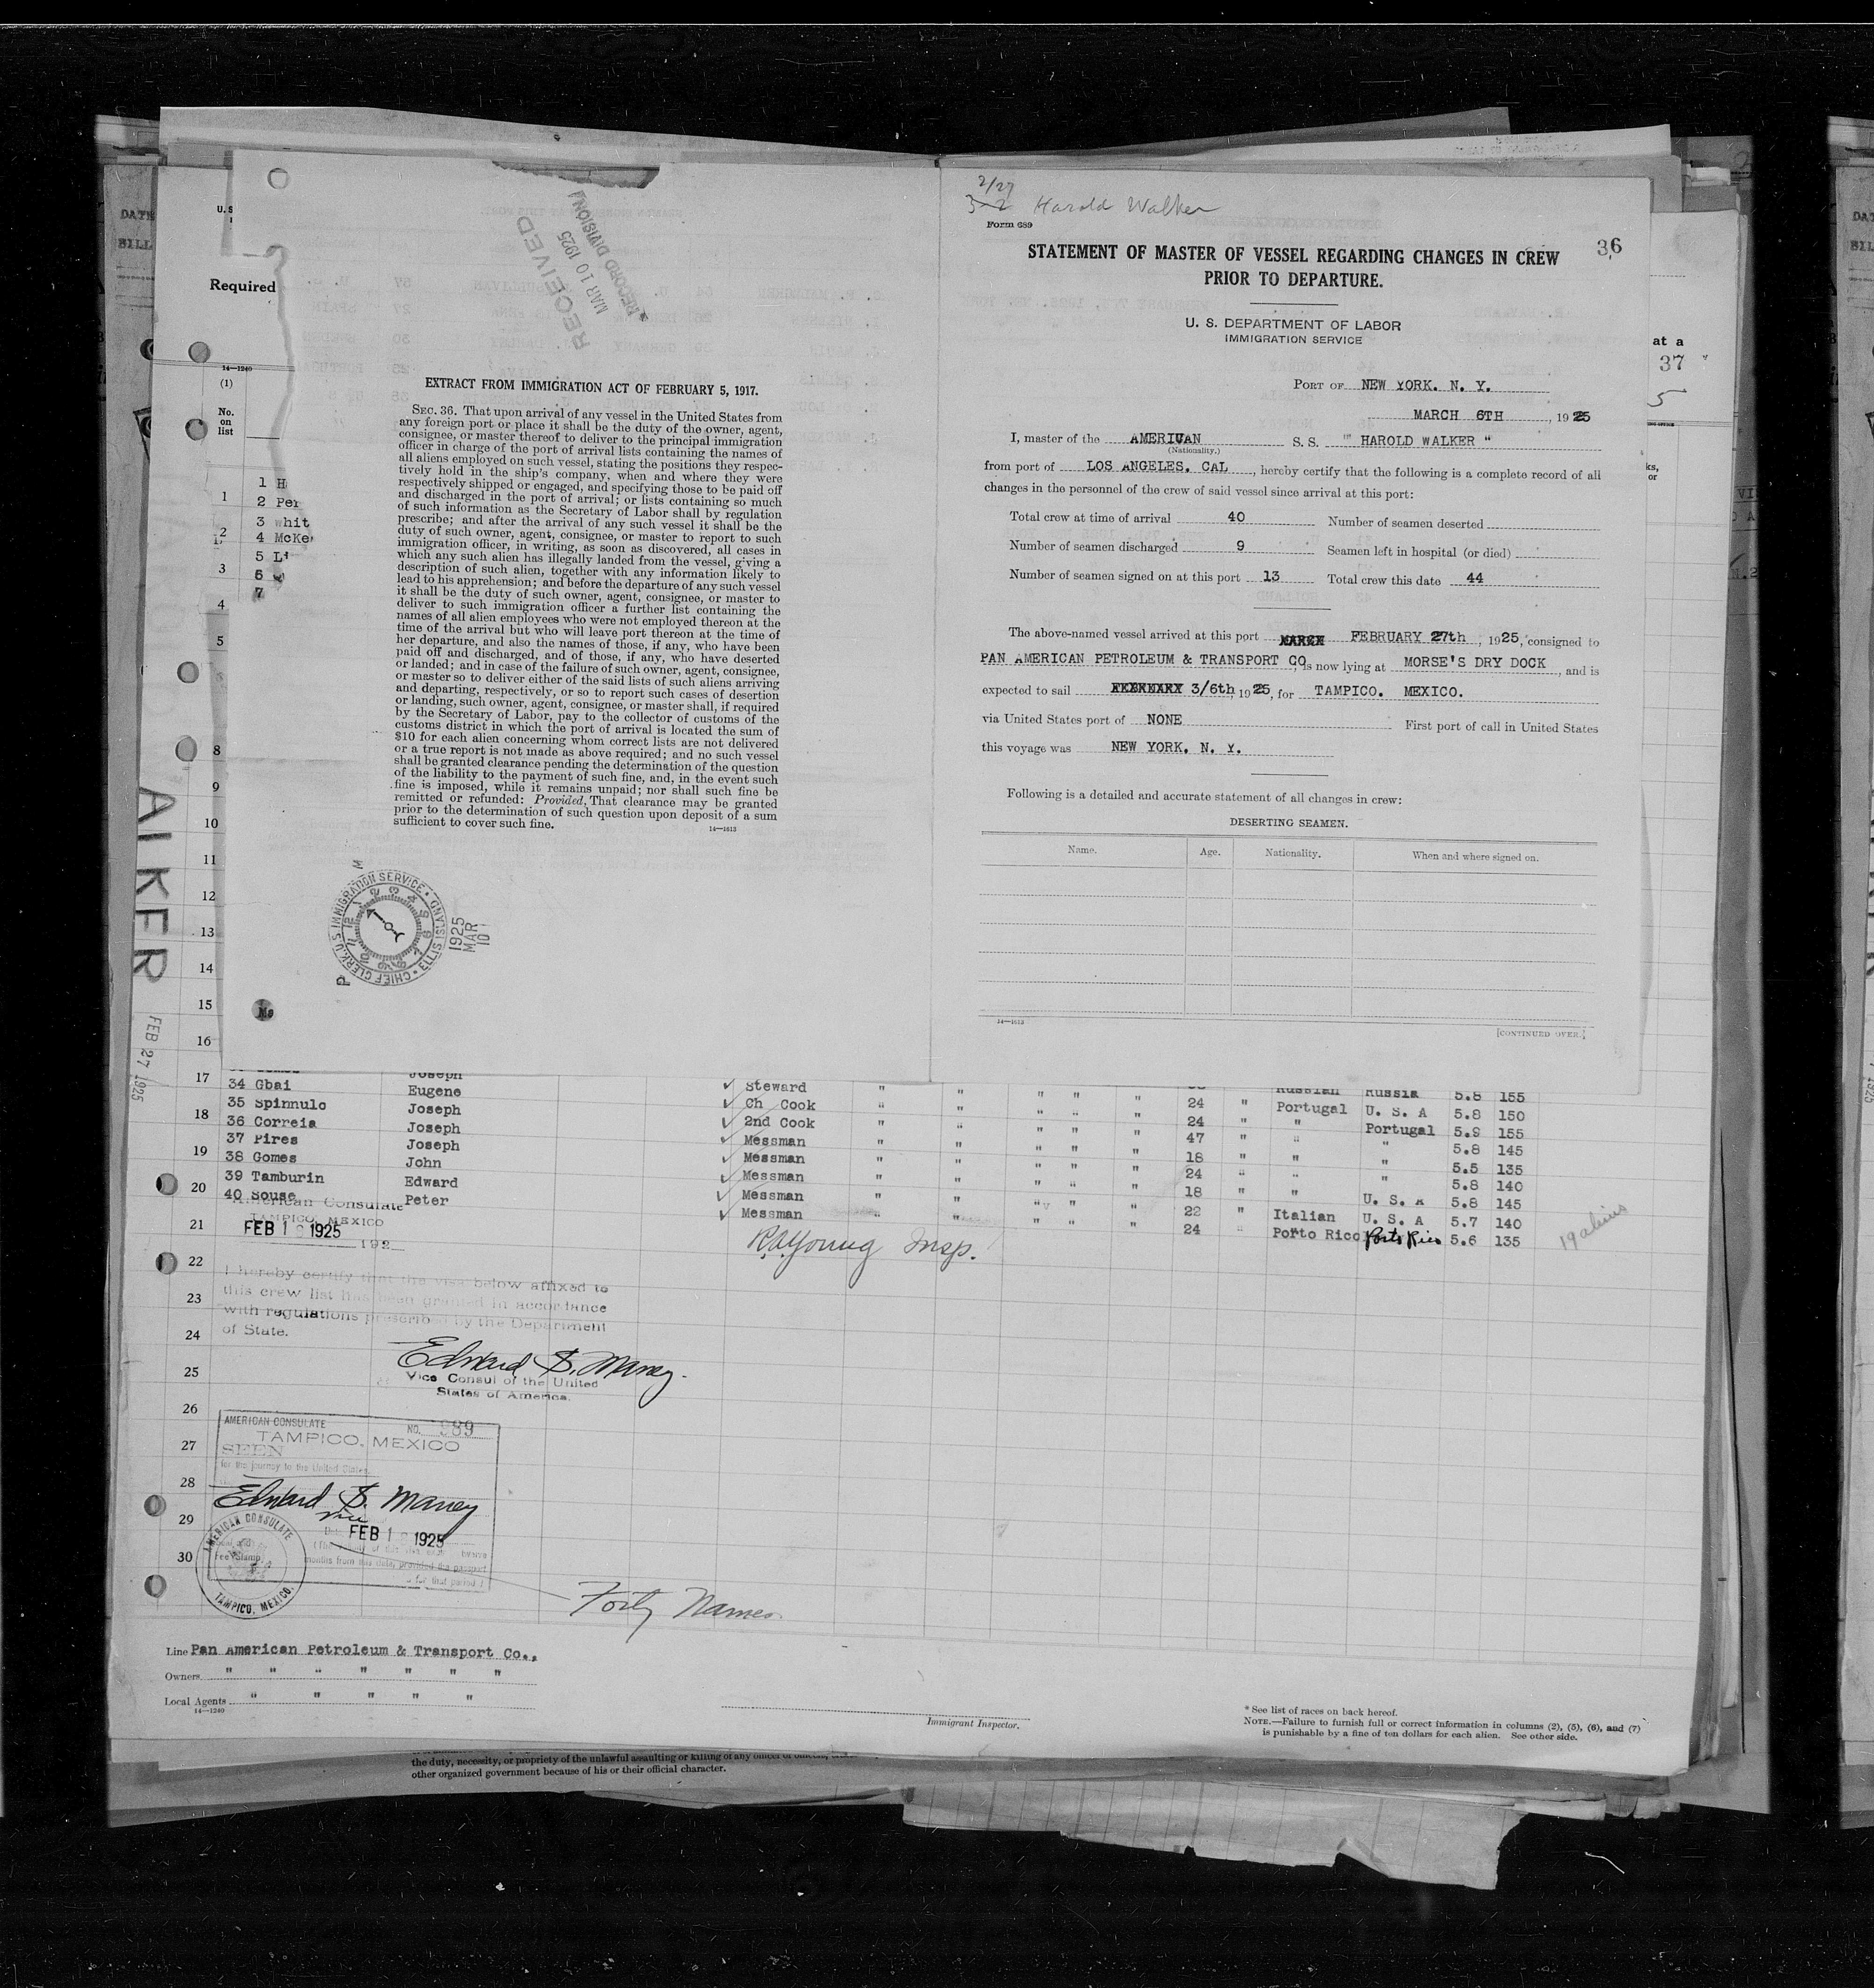 2/27
3-2 Harold Walker
Form 689
36
STATEMENT OF MASTER OF VESSEL REGARDING CHANGES IN CREW
PRIOR TO DEPARTURE.
U. S. DEPARTMENT OF LABOR
IMMIGRATION SERVICE
PORT OF NEW YORK. N. Y.
MARCH 6TH, 1925
I, master of the AMERICAN S. S. " HAROLD WALKER "
(Nationality.)
from port of LOS ANGELES. CAL, hereby certify that the following is a complete record of all
changes in the personnel of the crew of said vessel since arrival at this port:
Total crew at time of arrival 40 Number of seamen deserted
Number of seamen discharged 9 Seamen left in hospital (or died)
Number of seamen signed on at this port 13 Total crew this date 44
The above-named vessel arrived at this port MARCH FEBRUARY 27th, 1925, consigned to
PAN AMERICAN PETROLEUM & TRANSPORT CO, is now lying at MORSE'S DRY DOCK, and is
expected to sail FEBRUARY 3/6th, 1925, for TAMPICO. MEXICO.
via United States port of NONE First port of call in United States
this voyage was NEW YORK. N. Y.
Following is a detailed and accurate statement of all changes in crew:
DESERTING SEAMEN.
Name. Age. Nationality. When and where signed on.
14—1613
[CONTINUED OVER.]
RECEIVED
MAR 10 1925
RECORD DIVISION
EXTRACT FROM IMMIGRATION ACT OF FEBRUARY 5, 1917.
SEC. 36. That upon arrival of any vessel in the United States from
any foreign port or place it shall be the duty of the owner, agent,
consignee, or master thereof to deliver to the principal immigration
officer in charge of the port of arrival lists containing the names of
all aliens employed on such vessel, stating the positions they respec-
tively hold in the ship's company, when and where they were
respectively shipped or engaged, and specifying those to be paid off
and discharged in the port of arrival; or lists containing so much
of such information as the Secretary of Labor shall by regulation
prescribe; and after the arrival of any such vessel it shall be the
duty of such owner, agent, consignee, or master to report to such
immigration officer, in writing, as soon as discovered, all cases in
which any such alien has illegally landed from the vessel, giving a
description of such alien, together with any information likely to
lead to his apprehension; and before the departure of any such vessel
it shall be the duty of such owner, agent, consignee, or master to
deliver to such immigration officer a further list containing the
names of all alien employees who were not employed thereon at the
time of the arrival but who will leave port thereon at the time of
her departure, and also the names of those, if any, who have been
paid off and discharged, and of those, if any, who have deserted
or landed; and in case of the failure of such owner, agent, consignee,
or master so to deliver either of the said lists of such aliens arriving
and departing, respectively, or so to report such cases of desertion
or landing, such owner, agent, consignee, or master shall, if required
by the Secretary of Labor, pay to the collector of customs of the
customs district in which the port of arrival is located the sum of
$10 for each alien concerning whom correct lists are not delivered
or a true report is not made as above required; and no such vessel
shall be granted clearance pending the determination of the question
of the liability to the payment of such fine, and, in the event such
fine is imposed, while it remains unpaid; nor shall such fine be
remitted or refunded: Provided, That clearance may be granted
prior to the determination of such question upon deposit of a sum
sufficient to cover such fine.
14—1613
CHIEF CLERK, U. S. IMMIGRATION SERVICE • ELLIS ISLAND
1925
MAR
10
Required
14—1240
(1)
No.
on
list
1 H
2 Per
3 whit
4 McKe
5 Li
6
7
at a
37
ALKER
FEB 27 1925
Joseph Steward
34 Gbai Eugene Ch Cook
35 Spinnulo Joseph 2nd Cook
36 Correia Joseph Messman
37 Pires Joseph Messman
38 Gomes John Messman
39 Tamburin Edward Messman
40 Souse Peter Messman
Russian Russia 5.8 155
24 " Portugal U. S. A 5.8 150
24 " " Portugal 5.9 155
47 " " " 5.8 145
18 " " " 5.5 135
24 " " " 5.8 140
18 " " U. S. A 5.8 145
22 " Italian U. S. A 5.7 140
24 " Porto Rico Porto Rico 5.6 135
19 aliens
R. A. Young Insp.
American Consulate
TAMPICO, MEXICO
FEB 1 1925
192
I hereby certify that the visa below affixed to
this crew list has been granted in accordance
with regulations prescribed by the Department
of State.
Edward S. Maney
Vice Consul of the United
States of America.
AMERICAN CONSULATE NO. 989
TAMPICO, MEXICO
SEEN
for the journey to the United States.
Edward S. Maney
vice
Date FEB 1 1925
months from this date, provided the passport
for that period.)
AMERICAN CONSULATE
TAMPICO, MEXICO.
Forty Names
Line Pan American Petroleum & Transport Co.,
Owners " " " " " " "
Local Agents " " " " "
14—1240
Immigrant Inspector.
* See list of races on back hereof.
NOTE.—Failure to furnish full or correct information in columns (2), (5), (6), and (7)
is punishable by a fine of ten dollars for each alien. See other side.
the duty, necessity, or propriety of the unlawful assaulting or killing of any officer or officers,
other organized government because of his or their official character.